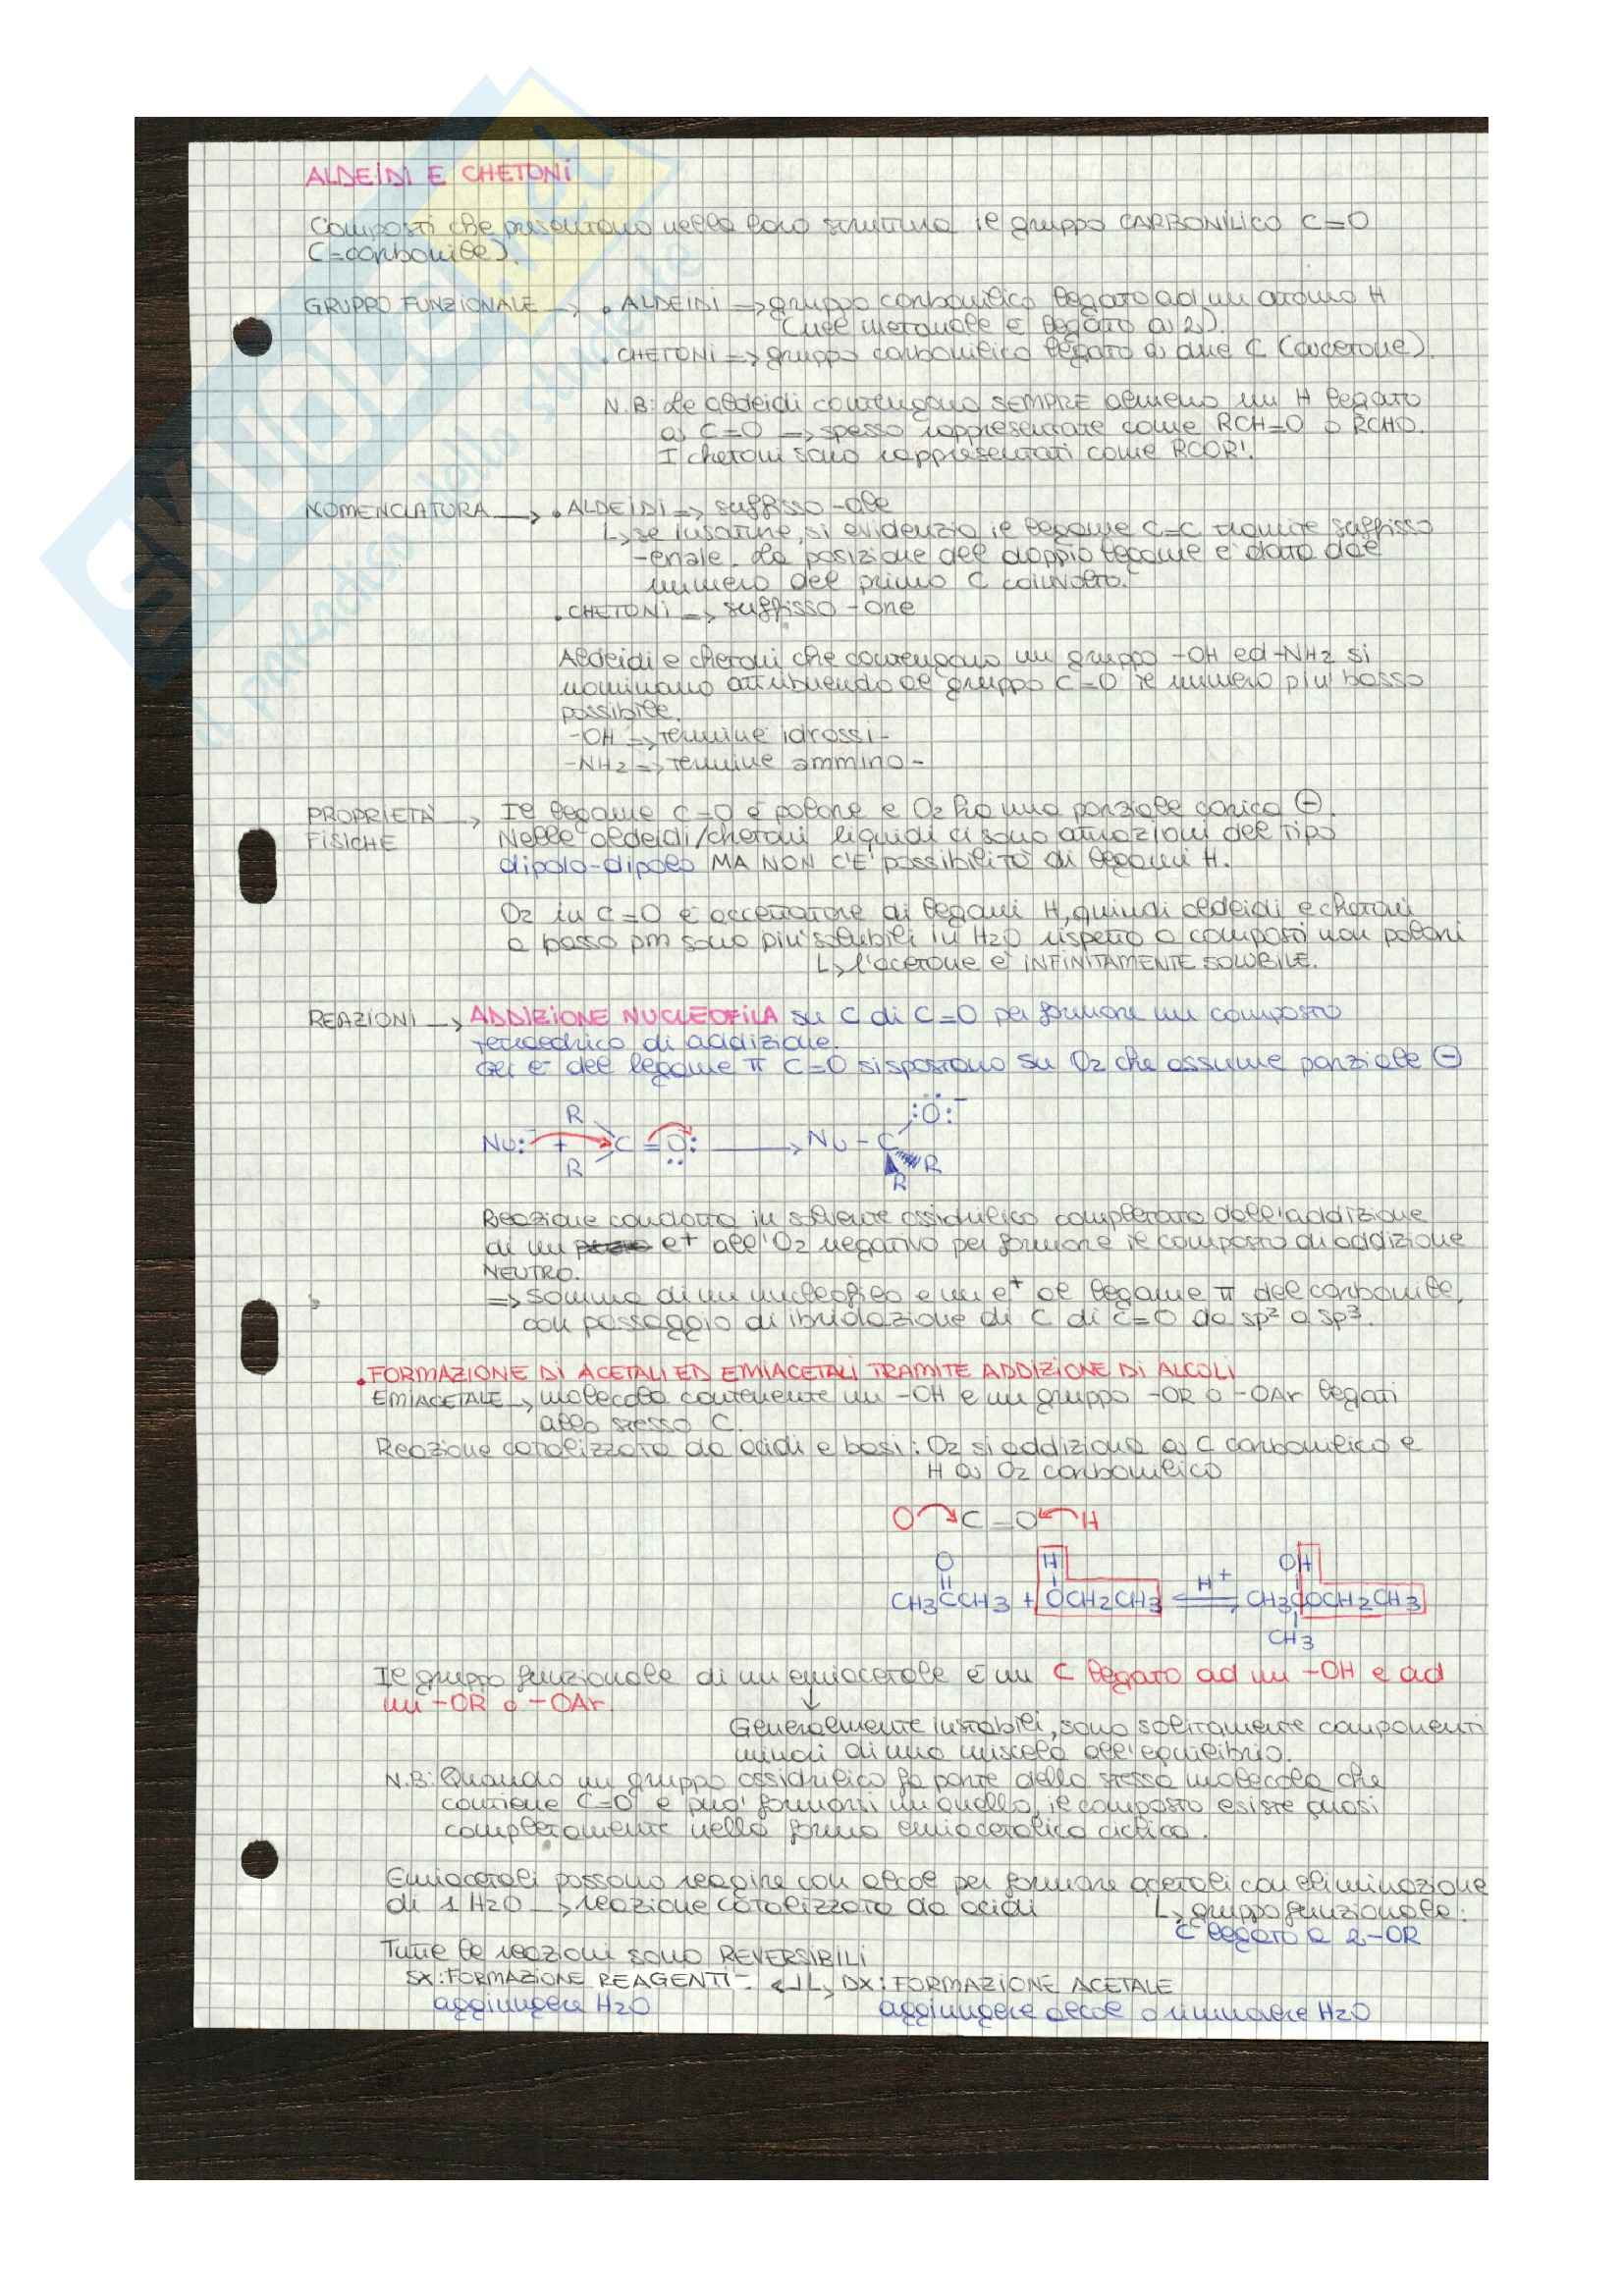 ALDEIDI E CHETONI
Composti che presentano nella loro struttura il gruppo CARBONILICO C=O
C=carbonile).
GRUPPO FUNZIONALE → • ALDEIDI => gruppo carbonilico legato ad un atomo H
(nel metanale è legato a 2).
• CHETONI => gruppo carbonilico legato a due C (acetone).
N.B: Le aldeidi contengono SEMPRE almeno un H legato
a C=O => spesso rappresentate come RCH=O o RCHO.
I chetoni sono rappresentati come RCOR'.
NOMENCLATURA → • ALDEIDI => suffisso -ale
↳ se insature, si evidenzia il legame C=C tramite suffisso
-enale. La posizione del doppio legame è data dal
numero del primo C coinvolto.
• CHETONI => suffisso -one
Aldeidi e chetoni che contengono un gruppo -OH ed -NH2 si
nominano attribuendo al gruppo C=O il numero più basso
possibile.
-OH => termine idrossi-
-NH2 => termine ammino-
PROPRIETÀ → Il legame C=O è polare e O2 ha una parziale carica ⊖.
FISICHE Nelle aldeidi/chetoni liquidi ci sono attrazioni del tipo
dipolo-dipolo MA NON C'E' possibilità di legami H.
O2 in C=O è accettatore di legami H, quindi aldeidi e chetoni
a basso pm sono più solubili in H2O rispetto a composti non polari
↳ l'acetone è INFINITAMENTE SOLUBILE.
REAZIONI → ADDIZIONE NUCLEOFILA su C di C=O per formare un composto
tetraedrico di addizione.
Gli e⁻ del legame π C=O si spostano su O2 che assume parziale ⊖
R :Ö:⁻
Nu:⁻ + C=O: → Nu - C
R R
R
Reazione condotta in solvente ossidrilico completata dall'addizione
di un e+ all'O2 negativo per formare il composto di addizione
NEUTRO.
=> Somma di un nucleofilo e un e+ al legame π del carbonile,
con passaggio di ibridazione di C di C=O da sp² a sp³.
• FORMAZIONE DI ACETALI ED EMIACETALI TRAMITE ADDIZIONE DI ALCOLI
EMIACETALE → molecola contenente un -OH e un gruppo -OR o -OAr legati
allo stesso C.
Reazione catalizzata da acidi e basi: O2 si addiziona a C carbonilico e
H a O2 carbonilico
O C=O H
O H OH
CH3CCH3 + OCH2CH3 ⇌ H+ CH3COCH2CH3
CH3
Il gruppo funzionale di un emiacetale è un C legato ad un -OH e ad
un -OR o -OAr.
Generalmente instabili, sono solitamente componenti
minori di una miscela all'equilibrio.
N.B: Quando un gruppo ossidrilico fa parte della stessa molecola che
contiene C=O e può formarsi un anello, il composto esiste quasi
completamente nella forma emiacetalica ciclica.
Emiacetali possono reagire con alcol per formare acetali con eliminazione
di 1 H2O → reazione catalizzata da acidi ↳ gruppo funzionale:
C legato a 2 -OR
Tutte le reazioni sono REVERSIBILI
SX: FORMAZIONE REAGENTI ↲↳ DX: FORMAZIONE ACETALE
aggiungere H2O aggiungere alcol o rimuovere H2O